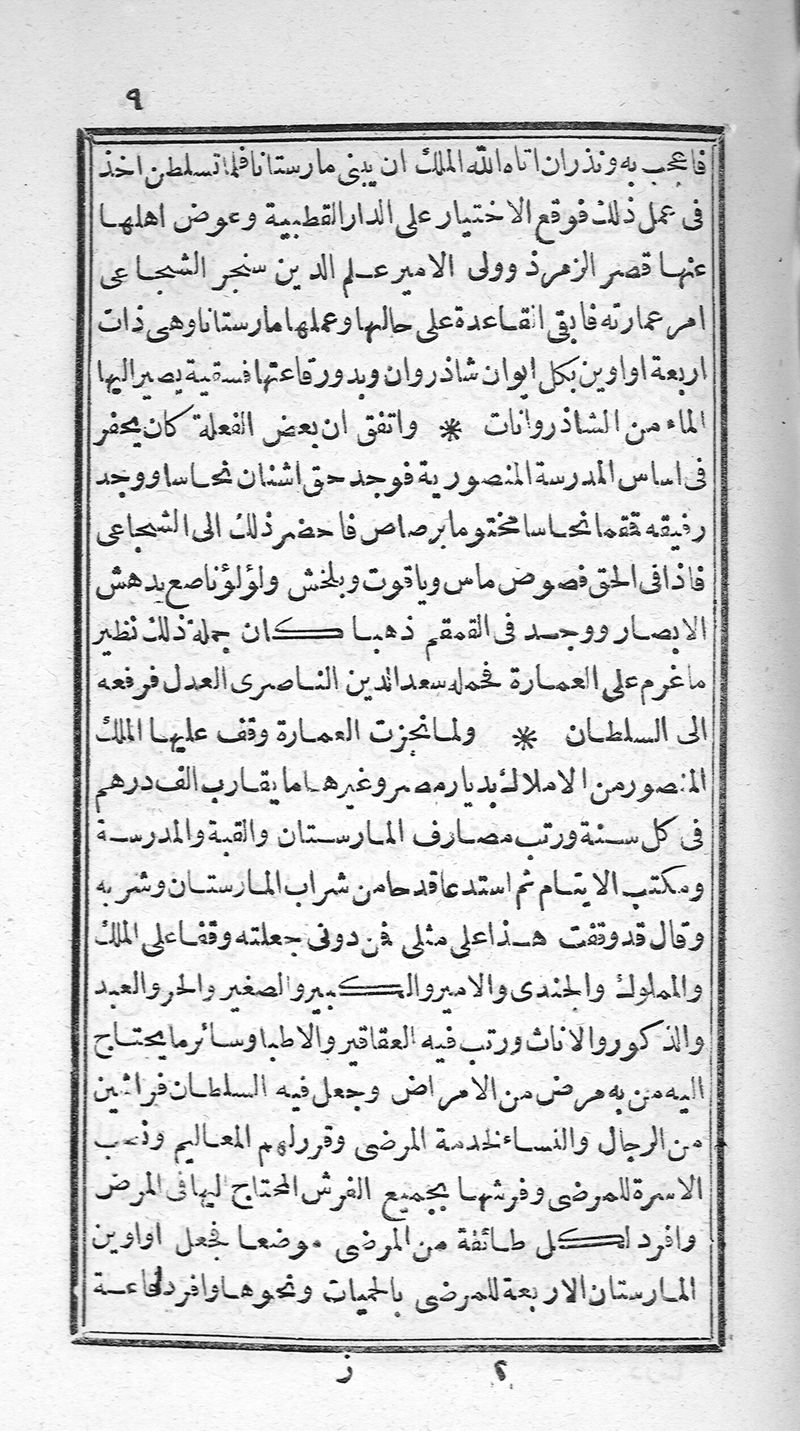 ٩
فاعجب به ونذر ان اتاه الله الملك ان يبنى مارستانا فلما تسلطن اخذ
فى عمل ذلك فوقع الاختيار على الدار القطبية وعوض اهلها
عنها قصر الزمرذ وولى الامير علم الدين سنجر الشجاعى
امر عمارته فابقى القاعدة على حالها وعملها مارستانا وهى ذات
اربعة اواوين بكل ايوان شاذروان وبدور قاعتها فسقية يصير اليها
الماء من الشاذروانات * واتفق ان بعض الفعلة كان يحفر
فى اساس المدرسة المنصورية فوجد حق اشنان نحاسا ووجد
رفيقه قمقما نحاسا مختوما برصاص فاحضر ذلك الى الشجاعى
فاذا فى الحق فصوص ماس وياقوت وبلخش ولؤلؤ ناصع يدهش
الابصار ووجد فى القمقم ذهبا كان جملة ذلك نظير
ما غرم على العمارة فحمله سعد الدين الناصرى العدل فرفعه
الى السلطان * ولما نجزت العمارة وقف عليها الملك
المنصور من الاملاك بديار مصر وغيرها ما يقارب الف درهم
فى كل سنة ورتب مصارف المارستان والقبة والمدرسة
ومكتب الايتام ثم استدعا قدحا من شراب المارستان وشربه
وقال قد وقفت هذا على مثلى فمن دونى جعلته وقفا على الملك
والمملوك والجندى والامير والكبير والصغير والحر والعبد
والذكور والاناث ورتب فيه العقاقير والاطبا وسائر ما يحتاج
اليه من به مرض من الامراض وجعل فيه السلطان فراشين
من الرجال والنساء لخدمة المرضى وقرر لهم المعاليم ونصب
الاسرة للمرضى وفرشها بجميع الفرش المحتاج اليها فى المرض
وافرد لكل طائفة من المرضى موضعا فجعل اواوين
المارستان الاربعة للمرضى بالحميات ونحوها وافرد قاعة
٢ ز